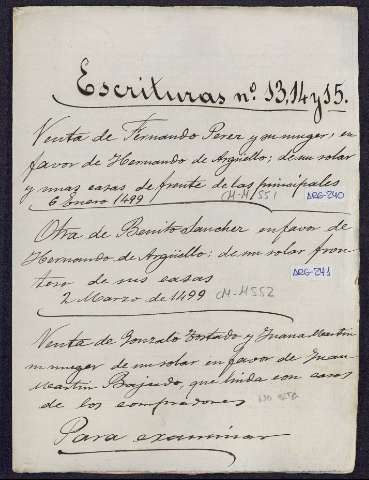 Escrituras nº. 13, 14 y 15.
Venta de Fernando Perez y su muger, en
favor de Hernando de Argüello; de un solar
y unas casas de frente de las principales
6 Enero 1499 CM-M/551 ARG-240
Otra de Benito Sancher en favor de
Hernando de Argüello: de un solar fron-
tero de sus casas ARG-241
2 Marzo de 1499 CM-M552
Venta de Gonzalo Hortado y Juana Martin
su muger de un solar en favor de Juan
Martin Bajardo, que linda con casas
de los compradores NO ESTA
Para examinar